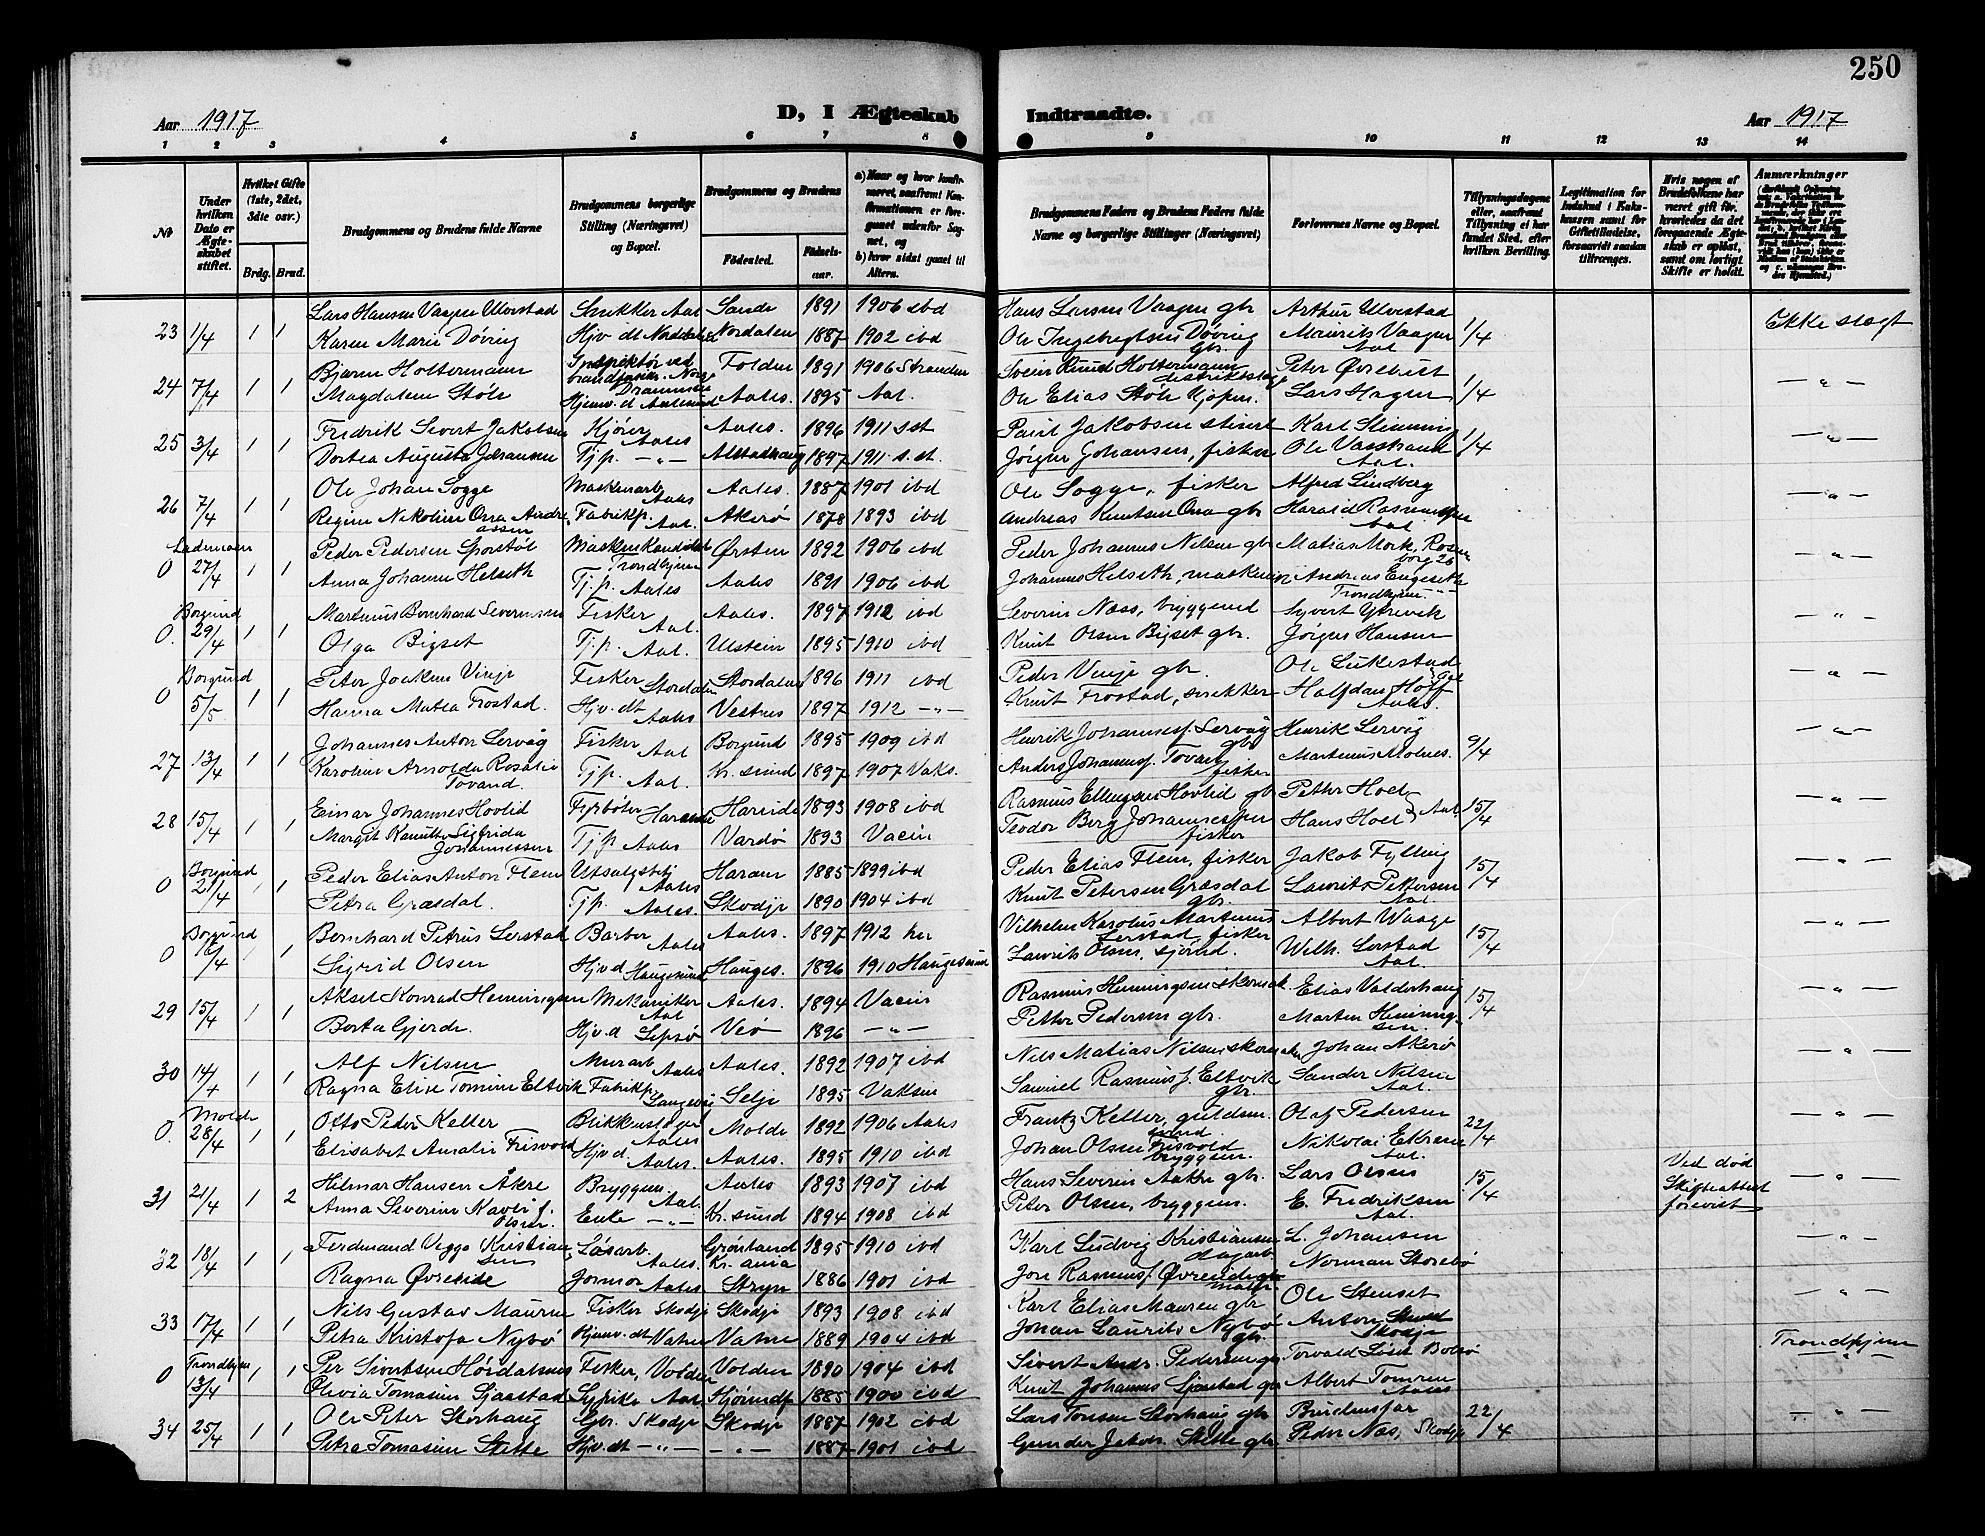 250
Aar 1917 D, I Ægteskab Indtraadte. Aar 1917
1 2 3 4 5 6 7 8 9 10 11 12 13 14
Nr
Under hvilken Dato er Ægteskabet stiftet.
Hvilket Gifte (1ste, 2det, 3die osv.)
Brdg. Brud.
Brudgommens og Brudens fulde Navne
Brudgommens borgerlige Stilling (Næringsvei) og Bopæl.
Brudgommens og Brudens
Fødested. Fødselsaar.
a) Naar og hvor konfirmeret, saafremt Konfirmationen er foregaaet udenfor Sognet, og
b) hvor sidst gaaet til Alters.
Brudgommens Faders og Brudens Faders fulde Navne og borgerlige Stillinger (Næringsvei)
Forlovernes Navne og Bopæl.
Tillysningsdagene eller, saafremt Tillysning ei har fundet Sted, efter hvilken Bevilling.
Legitimation for Indskud i Enkekassen samt for Giftetilladelse, forsaavidt saadan tiltrænges.
Hvis nogen af Brudefolkene har været gift før, hvorledes da det foregaaende Ægteskab er opløst, samt om lovligt Skifte er holdt.
Anmærkninger
Lars Hansen Vaagen Ulvestad Snikker Aal Sande 1891 1906 ibd Hans Larsen Vaagen gbr Arthur Ulvestad
23 1/4 1 1 Karen Marie Døving Hjv dt Norddalen Nordalen 1887 1902 ibd Ole Ingebrigtsen Døving gbr. Mauritz Vaagen Aal 1/4 Ikke slægt
Bjarne Holtermann Inspektør ved Folden 1891 1906 Stranden Svein Knud Holtermann distriktslæge Peter Øvrebust
24 7/4 1 1 Magdalene Støle Hjemv. dt Aalesund Aales. 1895 Aal. Ole Elias Støle Kjøpm. Lars Hagen 1/4 — " —
Fredrik Sivert Jakobsen Kjører Aales Aales. 1896 1911 s.st Paul Jakobsen Karl Slinning
25 3/4 1 1 Dortea Augusta Johansen Tjp. — " — Alstadhaug 1897 1911 s.st. Jørgen Johansen, fisker Ole Vasstrand Aal. 1/4 — " —
Ole Johan Sogge Maskinarb Aales Aales. 1887 1901 ibd Ole Sogge, fisker Alfred Lindberg
26 7/4 1 1 Regine Nikoline Ona Andreassen Fabrikp. Aal. Akerø 1878 1893 ibd Andreas Knutsen Ona gbr Harald Rasmussen Aal. — " —
Lademoen Peder Pedersen Sporstøl Maskinkandidat Trondhjem Ørsten 1892 1906 ibd Peder Johannes Nilsen gbr Matias Mork, Rosenborg 26
0 27/4 1 1 Anna Johanne Helseth Tj.p. Aales Aales 1891 1906 ibd Johannes Helseth, maskin Andreas Engeseth Trondhjem. — " —
Borgund Martinus Bernhard Severinsen Fisker Aal. Aales. 1897 1912 ibd Severin Næss, bryggemd Syvert Ytrevik
0. 29/4 1 1 Olga Bigset Tj.p. Aal. Ulstein 1895 1910 ibd Knut Olsen Bigset gbr. Jørgen Hansen — " —
Borgund Peter Joakim Vinje Fisker Stordalen Stordalen 1896 1911 ibd Peder Vinje gbr. Ole
0 5/5. 1 1 Hanna Matea Frostad. Hjv. dt Aales Vestnes 1897 1912 — " — Knut Frostad, snikker Halfdan Hoff Aales. — " —
Johannes Anton Lervåg Fisker Aal Borgund 1895 1909 ibd Henrik Johannesf. Lervåg gbr Henrik Lervåg
27 13/4 1 1 Karoline Arnolda Rosalie Tovand. Tjp. Aal. Kr. sund 1897 1907 Vaks. Anders Johannesf. Tovan fisker Martinus Molnes. 9/4 — " —
Einar Johannes Hovlid Fyrbøter Haramsø Harrid 1893 1908 ibd Rasmus Ellingsen Hovlid gbr Petter Hoel
28 15/4 1 1 Margit Kamille Sigfrida Johannessen Tjp Aales Vardø 1893 Vacin Teodor Berg Johannessen fisker Hans Hoel Aal 15/4 — " —
Borgund Peder Elias Anton Flem Utsalgsbej Aales Haram 1885 1899 ibd Peder Elias Flem, fisker Jakob Fylling
0 21/4 1 1 Petra Græsdal. Tjp. Aales. Skodje 1890 1904 ibd Knut Petersen Græsdal gbr. Laurits Pettersen Aal. 15/4 — " —
Borgund Bernhard Petrus Lerstad Barber Aales Aales. 1897 1912 her Vilhelm Karolus Martinus Lerstad fisker Albert Waage
0 16/4 1 1 Sigrid Olsen Hjv.d Haugesund Hauges. 1896 1910 Haugesund Laurits Olsen, sjømd. Wilh. Lerstad Aal. 15/4 — " —
Aksel Konrad Henningsen Mekaniker Aal Aales. 1894 Vacin Rasmus Henningsen skomak. Elias Valderhaug
29 15/4 1 1 Berta Gjerde. Hjv.d Lepsø Veø 1896 — " — Petter Pedersen gbr. Marten Henningsen. 15/4 — " —
Alf Nilsen Murarb. Aales Aales. 1892 1907 ibd Nils Matias Nilsen skomaker Johan Akerø
30 14/4 1 1 Ragna Elise Tomine Eltvik Fabrikp. Selje 1895 Vaksin Samuel Rasmusf. Eltvik gbr Sander Nilsen Aal. — " —
Molde Otto Peder Keller Blikkenslager Aales Molde 1892 1906 Aales Frantz Keller, guldsm. Olaf Pedersen
0. 28/4 1 1 Elisabet Amalie Frisvold Hjv.d. Aales. Aales. 1895 1910 ibd Johan Olsen Frisvold bryggem. Nikolai Ekrem Aal. 22/4 — " —
Helmar Hansen Åkre Bryggem. Aal. Aales 1893 1907 ibd Hans Severin Aakre gbr. Lars Olsen Ved død
31 21/4 1 2 Anna Severine f. Olsen. Enke — " — Kr. sund 1894 1908 ibd Peter Olsen, bryggem. E. Fredriksen Aal. 15/4 Skifteattest forevist — " —
Ferdinand Viggo Kristiansen Løsarb. Aales. Grønland Kr.ania 1895 1910 ibd Karl Ludvig Kristiansen dagarb L. Johansen
32 18/4 1 1 Ragna Øvreeide Jormor Aales Stryn 1886 1901 ibd Jon Rasmusf. Øvreeide Norman Storebø — " —
Nils Gustav Mauren Fisker Skodje Skodje 1893 1908 ibd Karl Elias Mauren gbr Ole Stenset
33 17/4 1 1 Petra Kristofa Nybø Hjemv. dt Vatne Vatne 1889 1904 ibd Johan Laurits Nybø gbr. Anton Skodje — " —
Trondhjem Per Sivertsen Høidalsnes Fisker, Volden Volden 1890 1904 ibd Sivert Andr. Pedersen gbr Torvald Bolsø Trondhjem
0 13/4 1 1 Olivia Tomasine Gjaastad Syerske Aal Hjørundfj 1885 1900 ibd Knut Johannes gbr Albert Tomren Aales
Ole Peter Storhaug Gbr. Skodje Skodje 1887 1902 ibd Lars Tonsen Storhaug gbr Brudensfar
34 25/4 1 1 Petra Tomasine Slette Hjv. dt — " — — " — 1887 1901 ibd Gunder Jakob. Slette gbr Peder Næs, Skodje 22/4 — " —